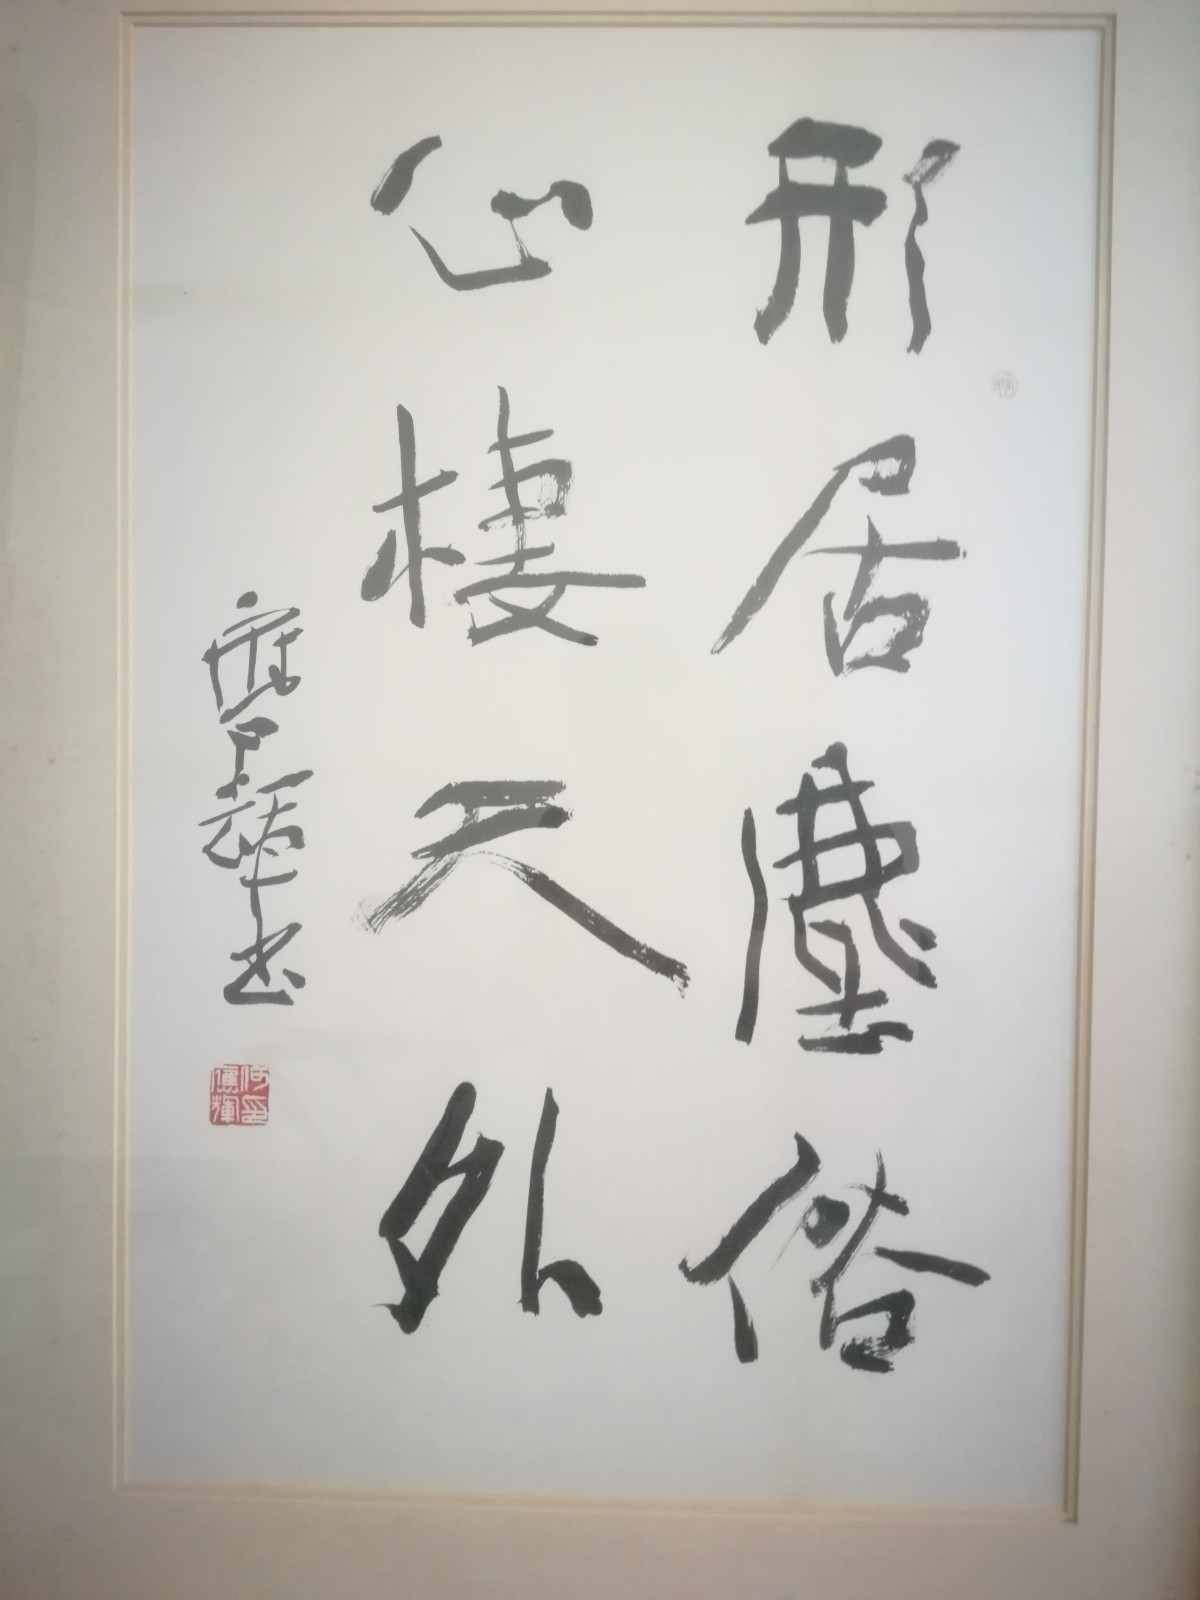 形居塵俗
心棲天外
應輝書
何應輝印